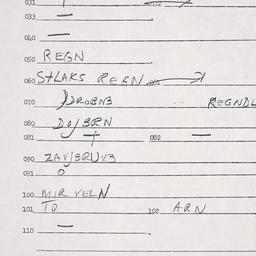 031
033 —
040 —
050 REGN
060 STLAKS REEN 061
070 REGNDL
080 DO/BRN
081 + 082 —
090 ZAV/BRUV3
091 0
100 MIR VELN
101 TO 102 ARN
110 —